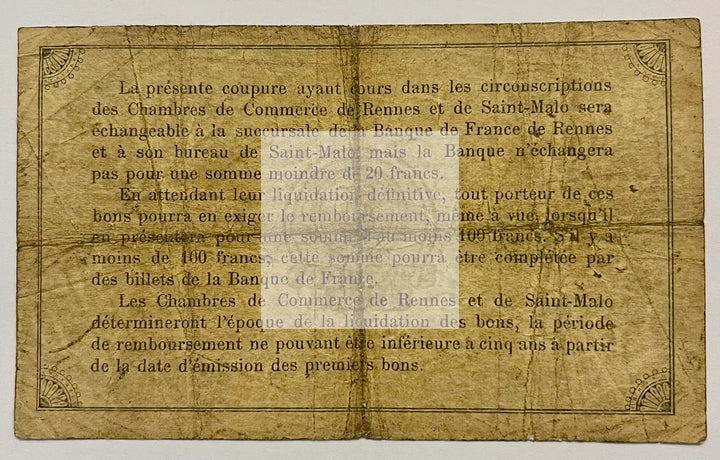 La présente coupure ayant cours dans les circonscriptions
des Chambres de Commerce de Rennes et de Saint-Malo sera
échangeable à la succursale de la Banque de France de Rennes
et à son bureau de Saint-Malo, mais la Banque n'échangera
pas pour une somme moindre de 20 francs.
En attendant leur liquidation définitive, tout porteur de ces
bons pourra en exiger le remboursement, même à vue, lorsqu'il
en présentera pour une somme d'au moins 100 francs. S'il y a
moins de 100 francs, cette somme pourra être complétée par
des billets de la Banque de France.
Les Chambres de Commerce de Rennes et de Saint-Malo
détermineront l'époque de la liquidation des bons, la période
de remboursement ne pouvant être inférieure à cinq ans à partir
de la date d'émission des premiers bons.